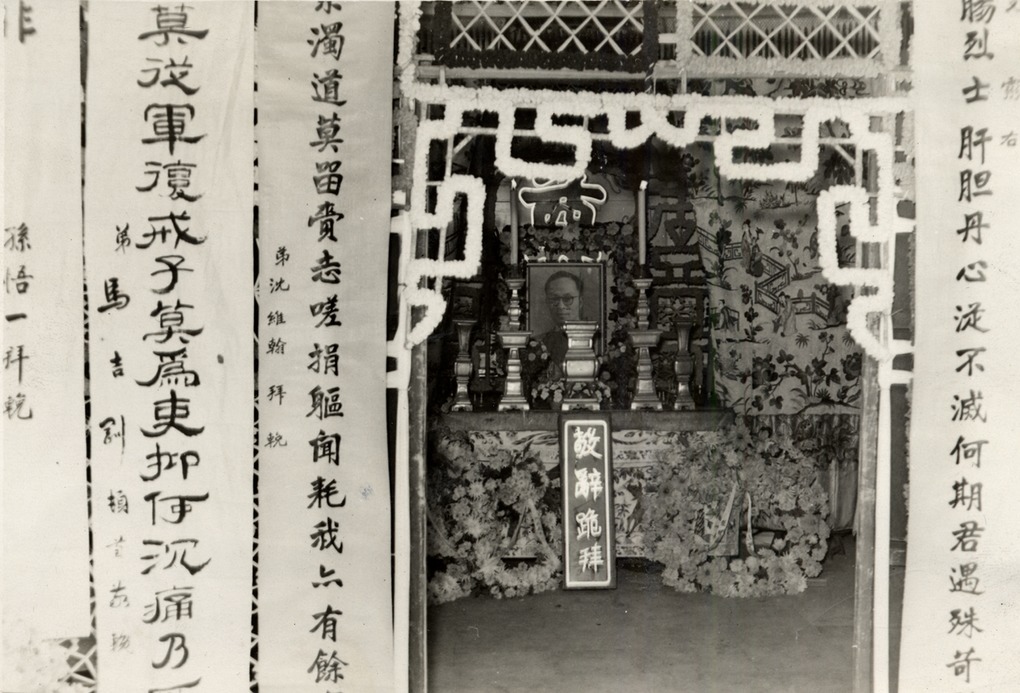 腸烈士肝胆丹心涏不滅何期君遇殊苛
右
敬辭跪拜
濁道莫留賫志嗟捐軀闻耗我亦有餘
弟沈維翰拜輓
莫從軍復戒子莫為吏抑何沉痛乃
弟馬吉釗頓首敬輓
非
孫悟一拜輓